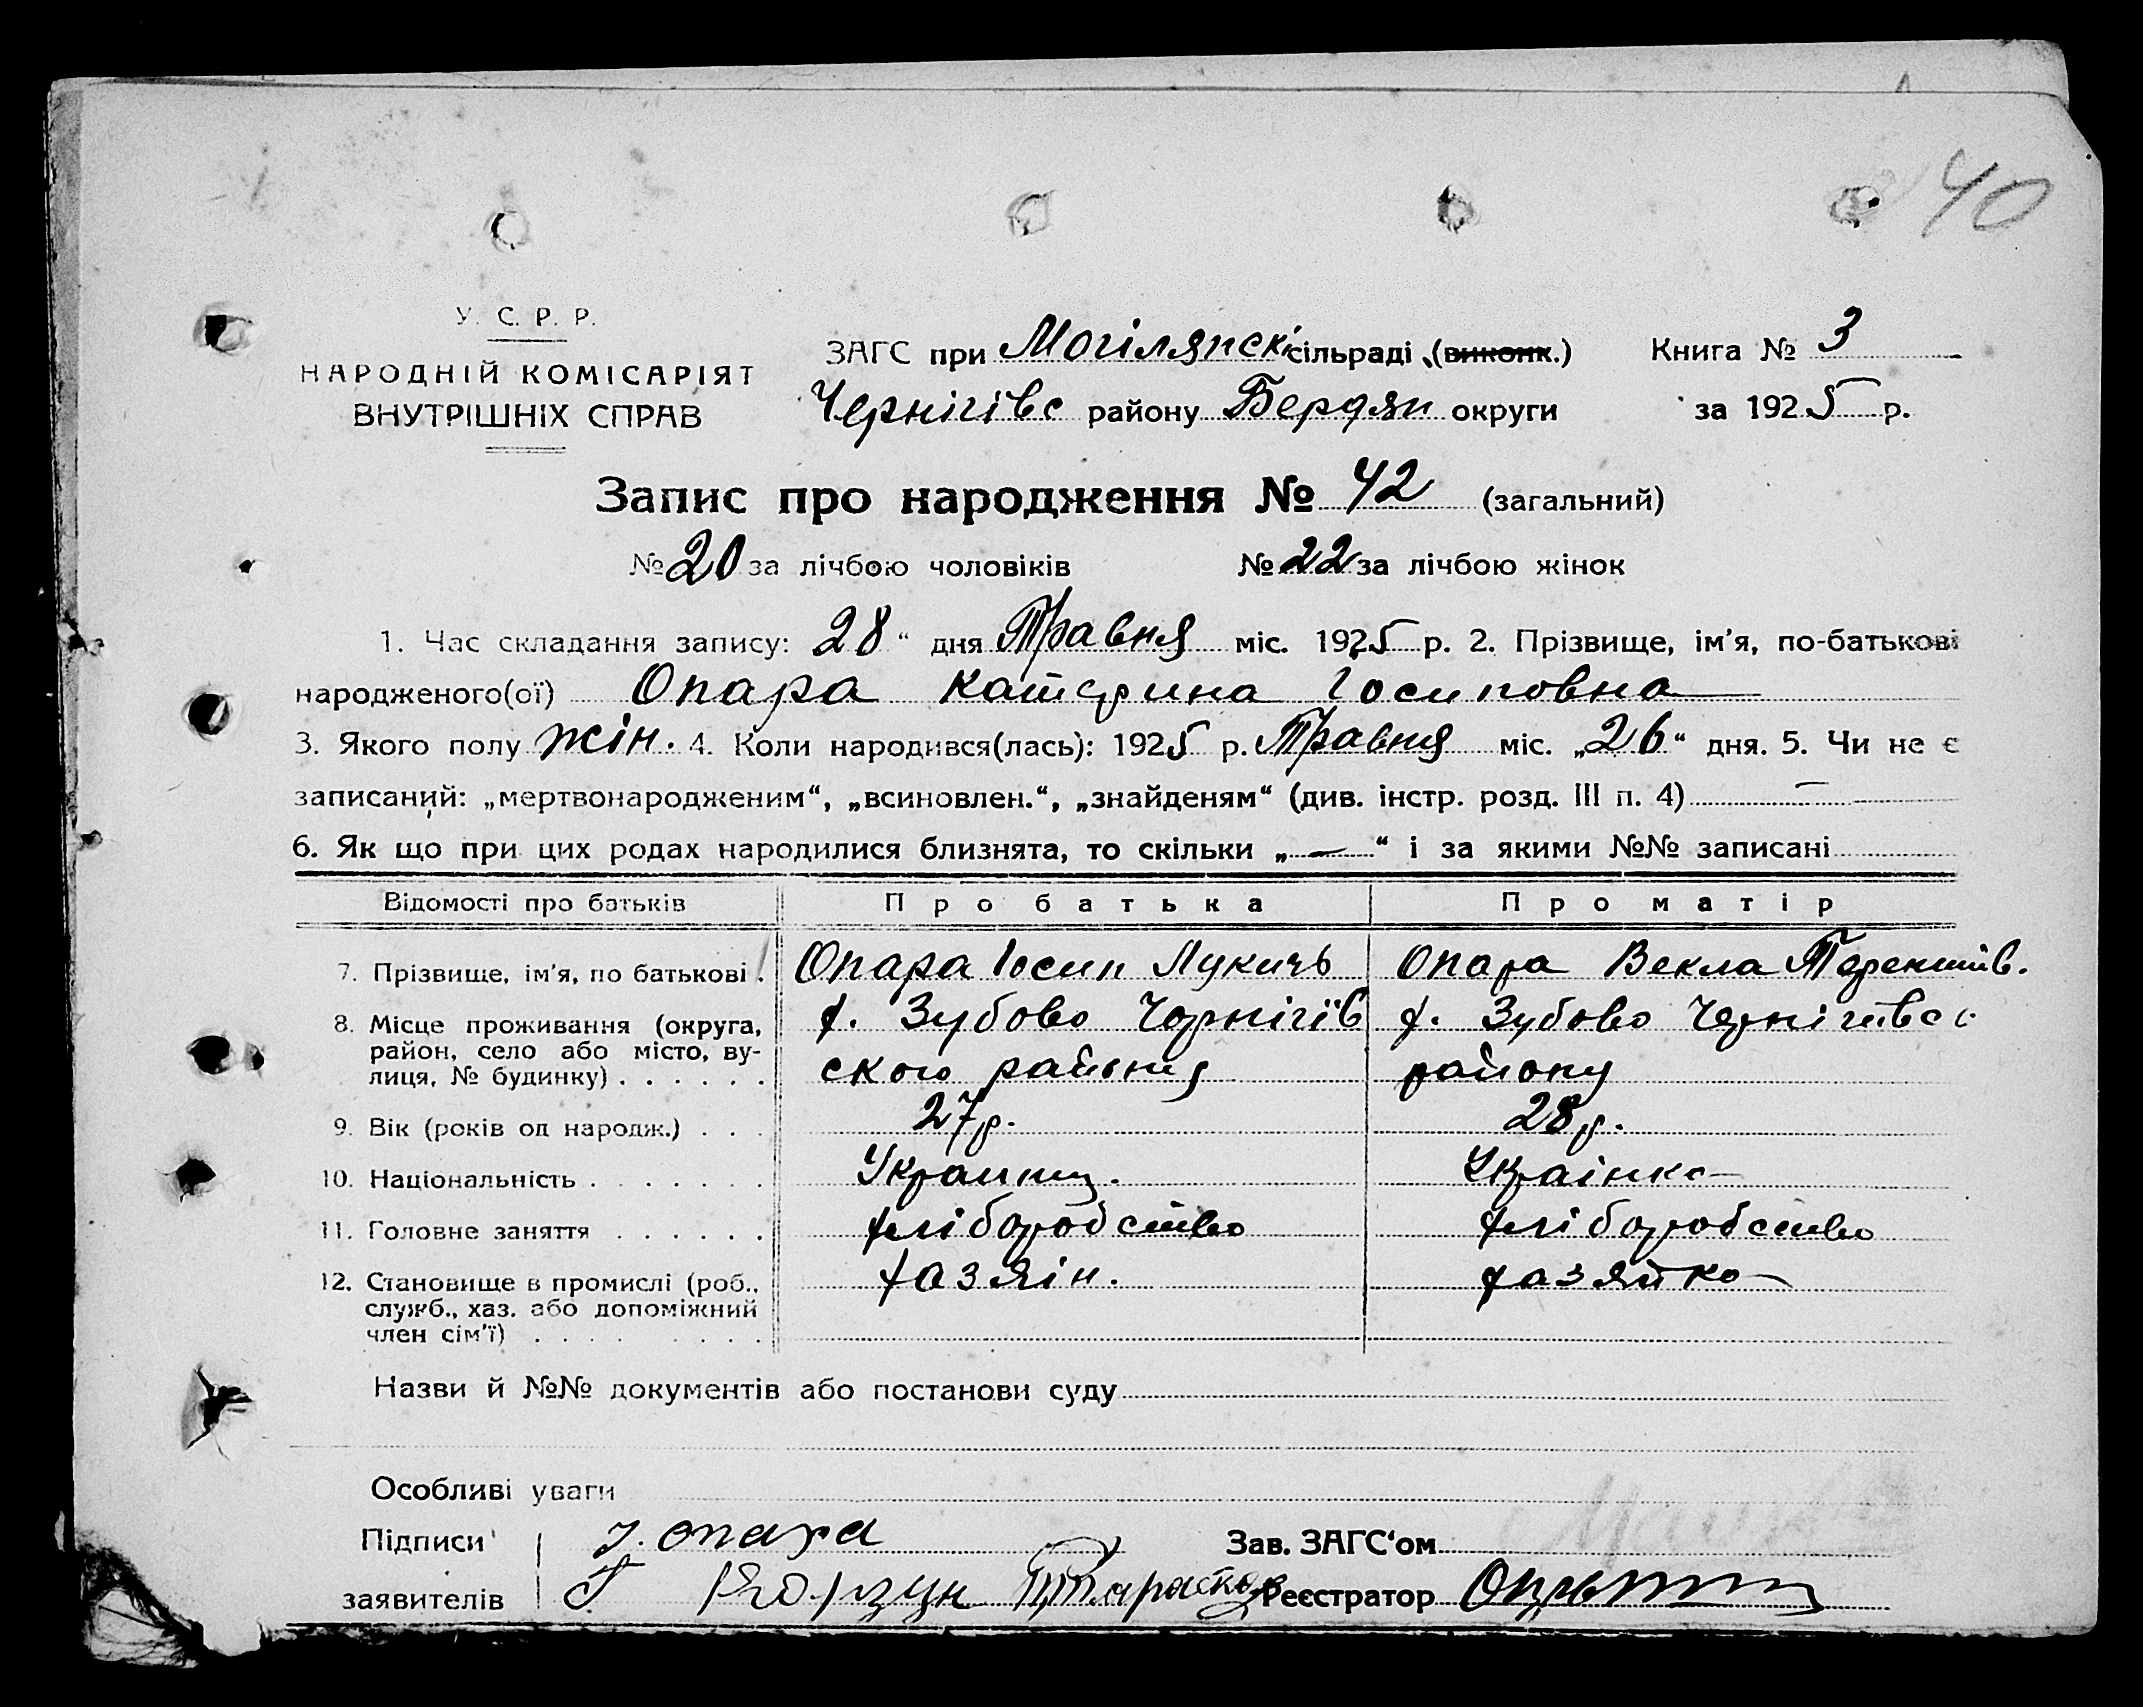 40
У. С. Р. Р.
НАРОДНІЙ КОМІСАРІЯТ
ВНУТРІШНІХ СПРАВ
ЗАГС при Могілянскі сільраді (виконк.)
Чернігівс району Бердян округи
Книга № 3
за 1925 р.
Запис про народження № 42 (загальний)
№ 20 за лічбою чоловіків № 22 за лічбою жінок
1. Час складання запису: 28 “ дня Травня міс. 1925 р. 2. Прізвище, ім'я, по-батькові
народженого(ої) Опара Катерина Іосиповна
3. Якого полу жін. 4. Коли народився(лась): 1925 р. Травня міс. „26“ дня. 5. Чи не є
записаний: „мертвонародженим“, „всиновлен.“, „знайденям“ (див. інстр. розд. III п. 4) —
6. Як що при цих родах народилися близнята, то скільки „—“ і за якими №№ записані
Відомості про батьків Про батька Про матір
7. Прізвище, ім'я, по батькові . Опара Іосип Лукичь Опара Векла Терентів.
8. Місце проживання (округа, х. Зубово Чернігів х. Зубово Чернігівс
район, село або місто, ву- ского району району
лиця, № будинку) . . . . . .
9. Вік (років од народж.) . . . 27 р. 28 р.
10. Національність . . . . . . . Украинц. Украінка
11. Головне заняття . . . . . . хліборобство хліборобство
12. Становище в промислі (роб., хазяін. хазяйка
служб., хаз. або допоміжний
член сім'ї) . . . . . . . .
Назви й №№ документів або постанови суду
Особливі уваги
Підписи І. опара Зав. ЗАГС‘ом
заявителів Реєстратор